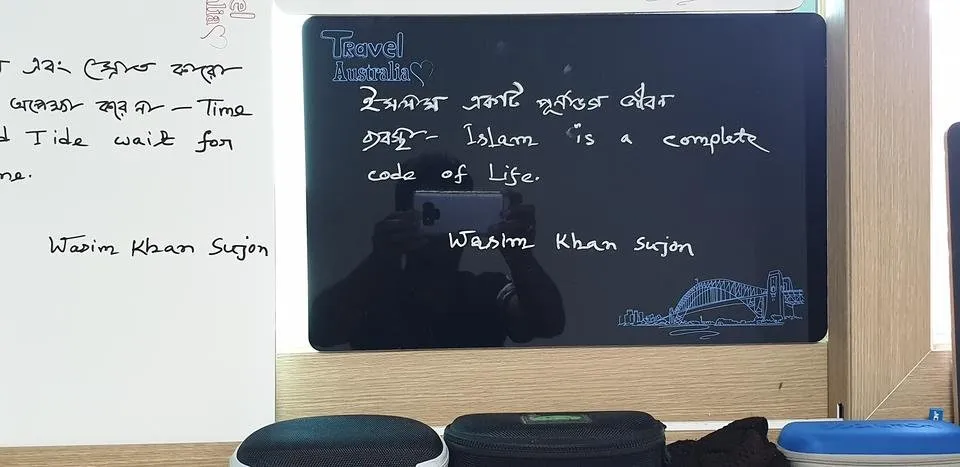 এবং স্রোত কারো
অপেক্ষা করে না - Time
Tide wait for
Wasim Khan Surjon
Travel
Australia
ইসলাম একটি পূর্নাঙ্গ জীবন
ব্যবস্থা - Islam is a complete
code of Life.
Wasim Khan Surjon